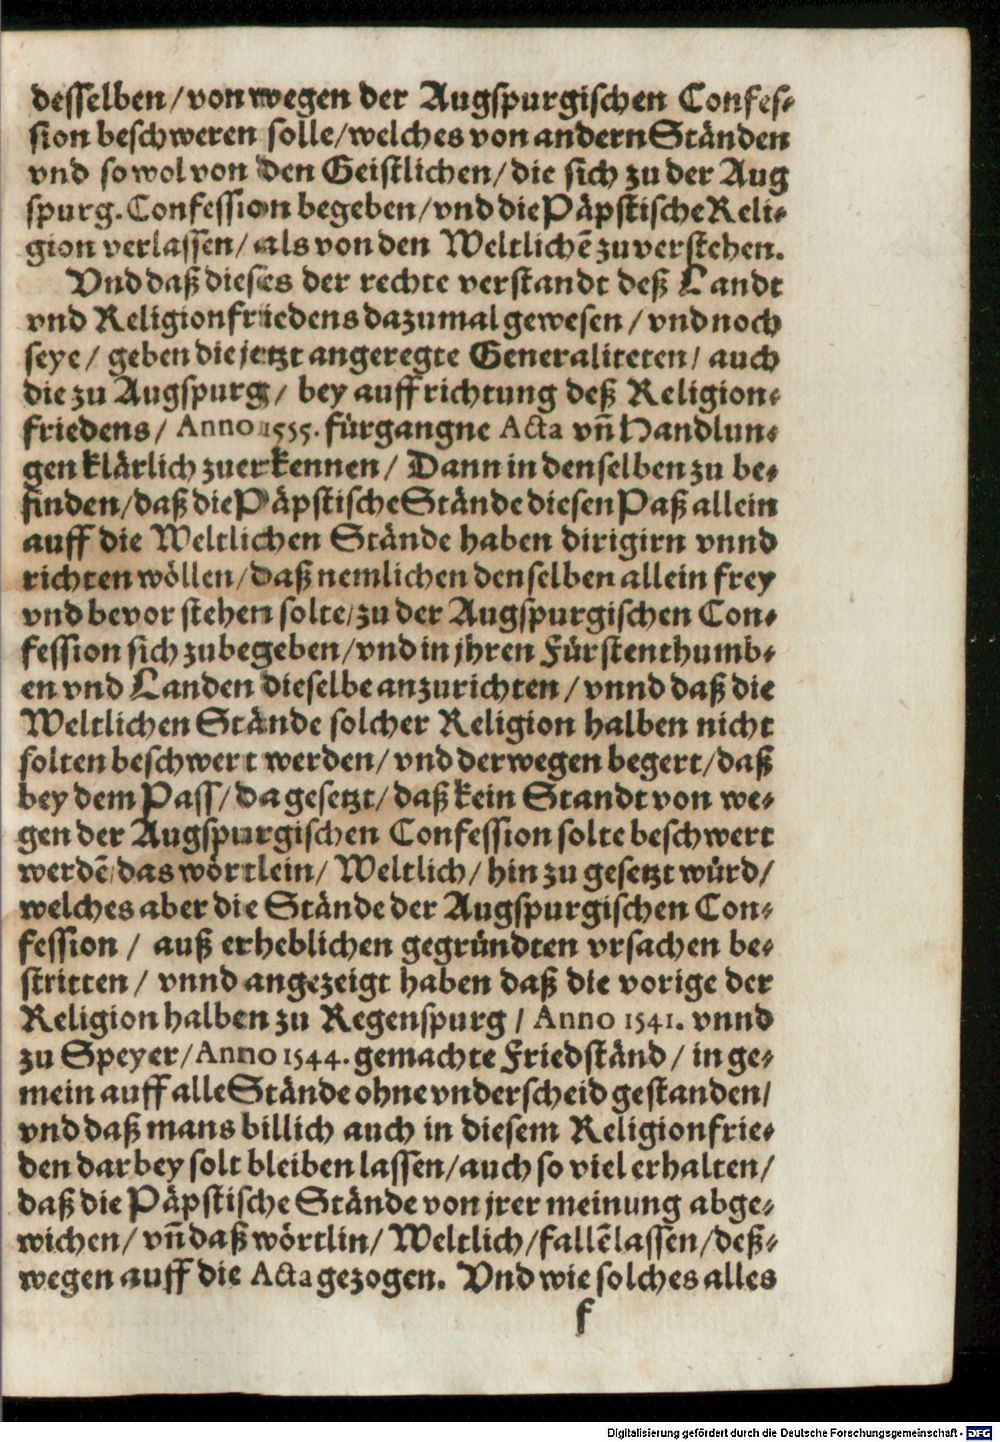 desselben / von wegen der Augspurgischen Confes⸗
sion beschweren solle / welches von andern Ständen
vnd so wol von den Geistlichen / die sich zu der Aug
spurg. Confession begeben / vnd die Päpstische Reli⸗
gion verlassen / als von den Weltlichē zuverstehen.
Vnd daß dieses der rechte verstandt deß Landt
vnd Religionfriedens dazumal gewesen / vnd noch
seye / geben die jetzt angeregte Generaliteten / auch
die zu Augspurg / bey auffrichtung deß Religion⸗
friedens / Anno 1555. fürgangne Acta vñ Handlun⸗
gen klärlich zuerkennen / Dann in denselben zu be⸗
finden / daß die Päpstische Stände diesen Paß allein
auff die Weltlichen Stände haben dirigirn vnnd
richten wöllen / daß nemlichen denselben allein frey
vnd bevor stehen solte / zu der Augspurgischen Con⸗
fession sich zubegeben / vnd in jhren Fürstenthumb⸗
en vnd Landen dieselbe anzurichten / vnnd daß die
Weltlichen Stände solcher Religion halben nicht
solten beschwert werden / vnd derwegen begert / daß
bey dem Pass / da gesetzt / daß kein Standt von we⸗
gen der Augspurgischen Confession solte beschwert
werdē / das wörtlein / Weltlich / hin zu gesetzt würd /
welches aber die Stände der Augspurgischen Con⸗
fession / auß erheblichen gegründten vrsachen be⸗
stritten / vnnd angezeigt haben daß die vorige der
Religion halben zu Regenspurg / Anno 1541. vnnd
zu Speyer / Anno 1544. gemachte Friedständ / in ge⸗
mein auff alle Stände ohne vnderscheid gestanden /
vnd daß mans billich auch in diesem Religionfrie⸗
den darbey solt bleiben lassen / auch so viel erhalten /
daß die Päpstische Stände von jrer meinung abge⸗
wichen / vñ daß wörtlin / Weltlich / fallē lassen / deß⸗
wegen auff die Acta gezogen. Vnd wie solches alles
f
Digitalisierung gefördert durch die Deutsche Forschungsgemeinschaft - DFG